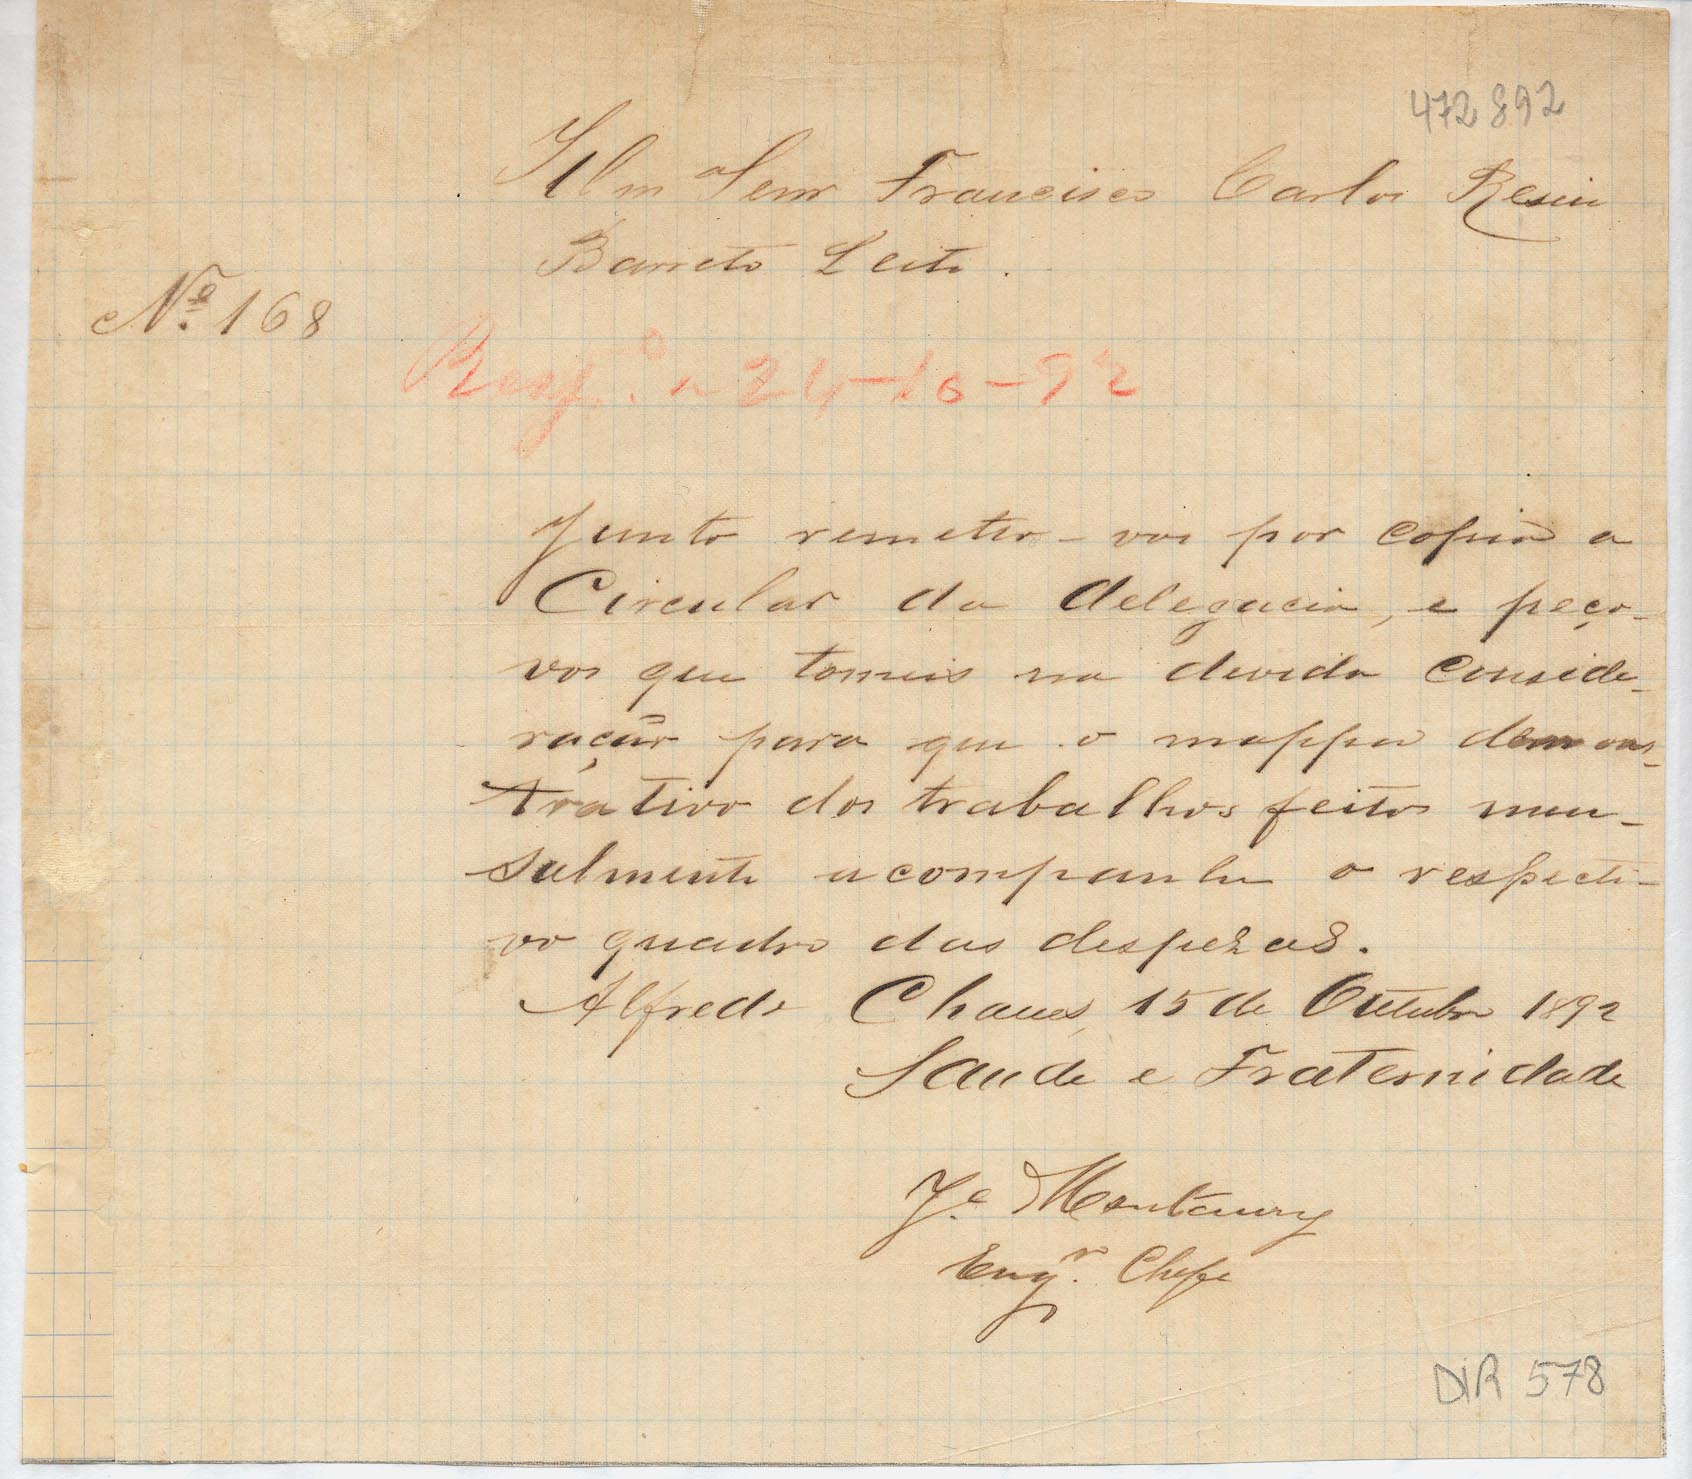 472892
Illm Senr Francisco Carlos Resin
Barreto Leite.
Nº 168
a 24-10-92
Junto remetto-vos por copia a
Circular da delegacia, e peço-
vos que tomeis na devida conside-
ração para que o mappa demons-
trativo dos trabalhos feitos men-
salmente acompanhe o respecti-
vo quadro das despezas.
Alfredo Chaves, 15 de Outubro 1892
Saude e Fraternidade
Je. Montaury
Engr. Chefe
DIR 578